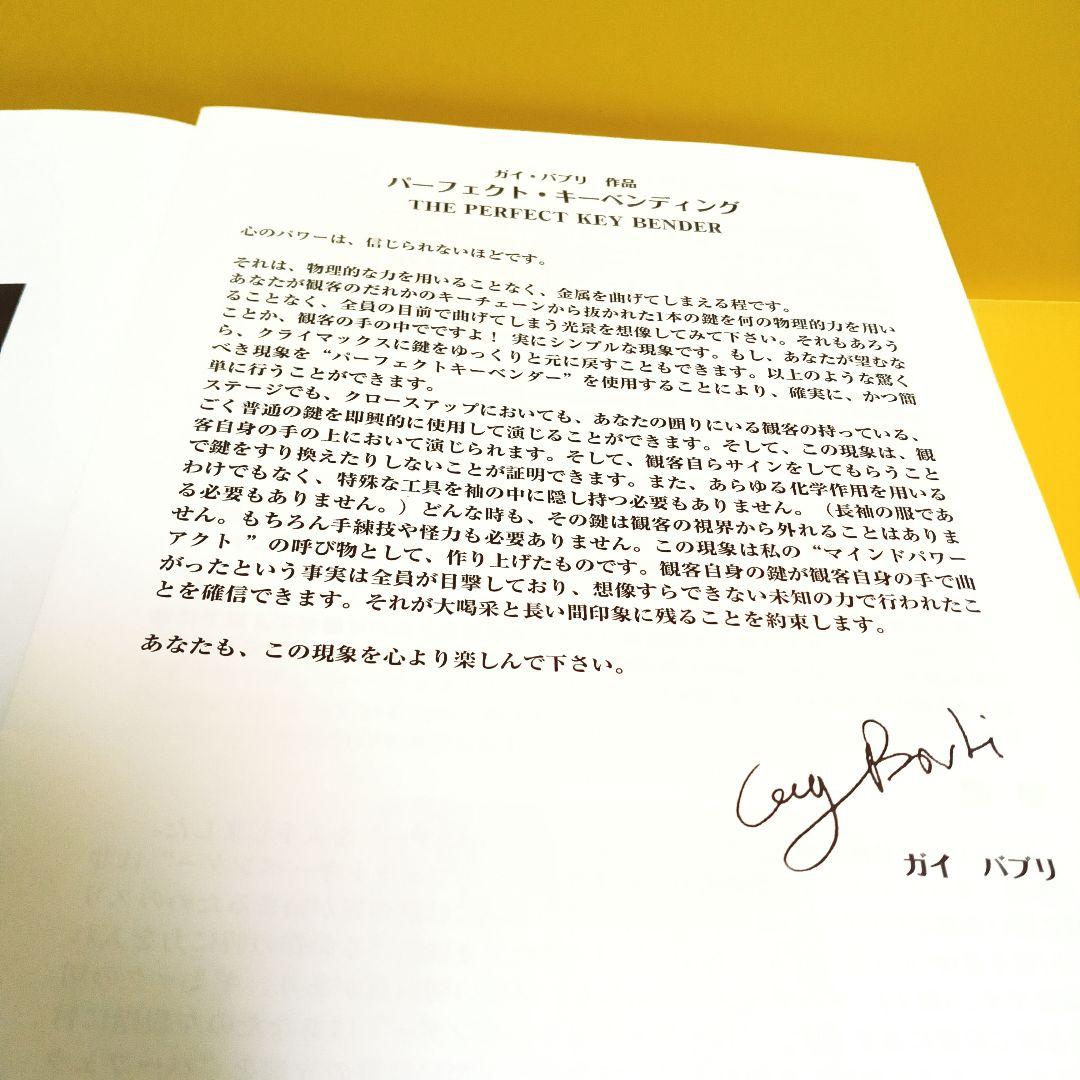 ガイ・バブリ 作品
パーフェクト・キーベンディング
THE PERFECT KEY BENDER
心のパワーは、信じられないほどです。
それは、物理的な力を用いることなく、金属を曲げてしまえる程です。
あなたが観客のだれかのキーチェーンから抜かれた1本の鍵を何の物理的力を用い
ることなく、全員の目前で曲げてしまう光景を想像してみて下さい。それもあろう
ことか、観客の手の中でですよ! 実にシンプルな現象です。もし、あなたが望むな
ら、クライマックスに鍵をゆっくりと元に戻すこともできます。以上のような驚く
べき現象を“パーフェクトキーベンダー”を使用することにより、確実に、かつ簡
単に行うことができます。
ステージでも、クロースアップにおいても、あなたの囲りにいる観客の持っている、
ごく普通の鍵を即興的に使用して演じることができます。そして、この現象は、観
客自身の手の上において演じられます。そして、観客自らサインをしてもらうこと
で鍵をすり換えたりしないことが証明できます。また、あらゆる化学作用を用いる
わけでもなく、特殊な工具を袖の中に隠し持つ必要もありません。(長袖の服であ
る必要もありません。)どんな時も、その鍵は観客の視界から外れることはありま
せん。もちろん手練技や怪力も必要ありません。この現象は私の“マインドパワー
アクト ”の呼び物として、作り上げたものです。観客自身の鍵が観客自身の手で曲
がったという事実は全員が目撃しており、想像すらできない未知の力で行われたこ
とを確信できます。それが大喝采と長い間印象に残ることを約束します。
あなたも、この現象を心より楽しんで下さい。
Guy Bavli
ガイ バブリ